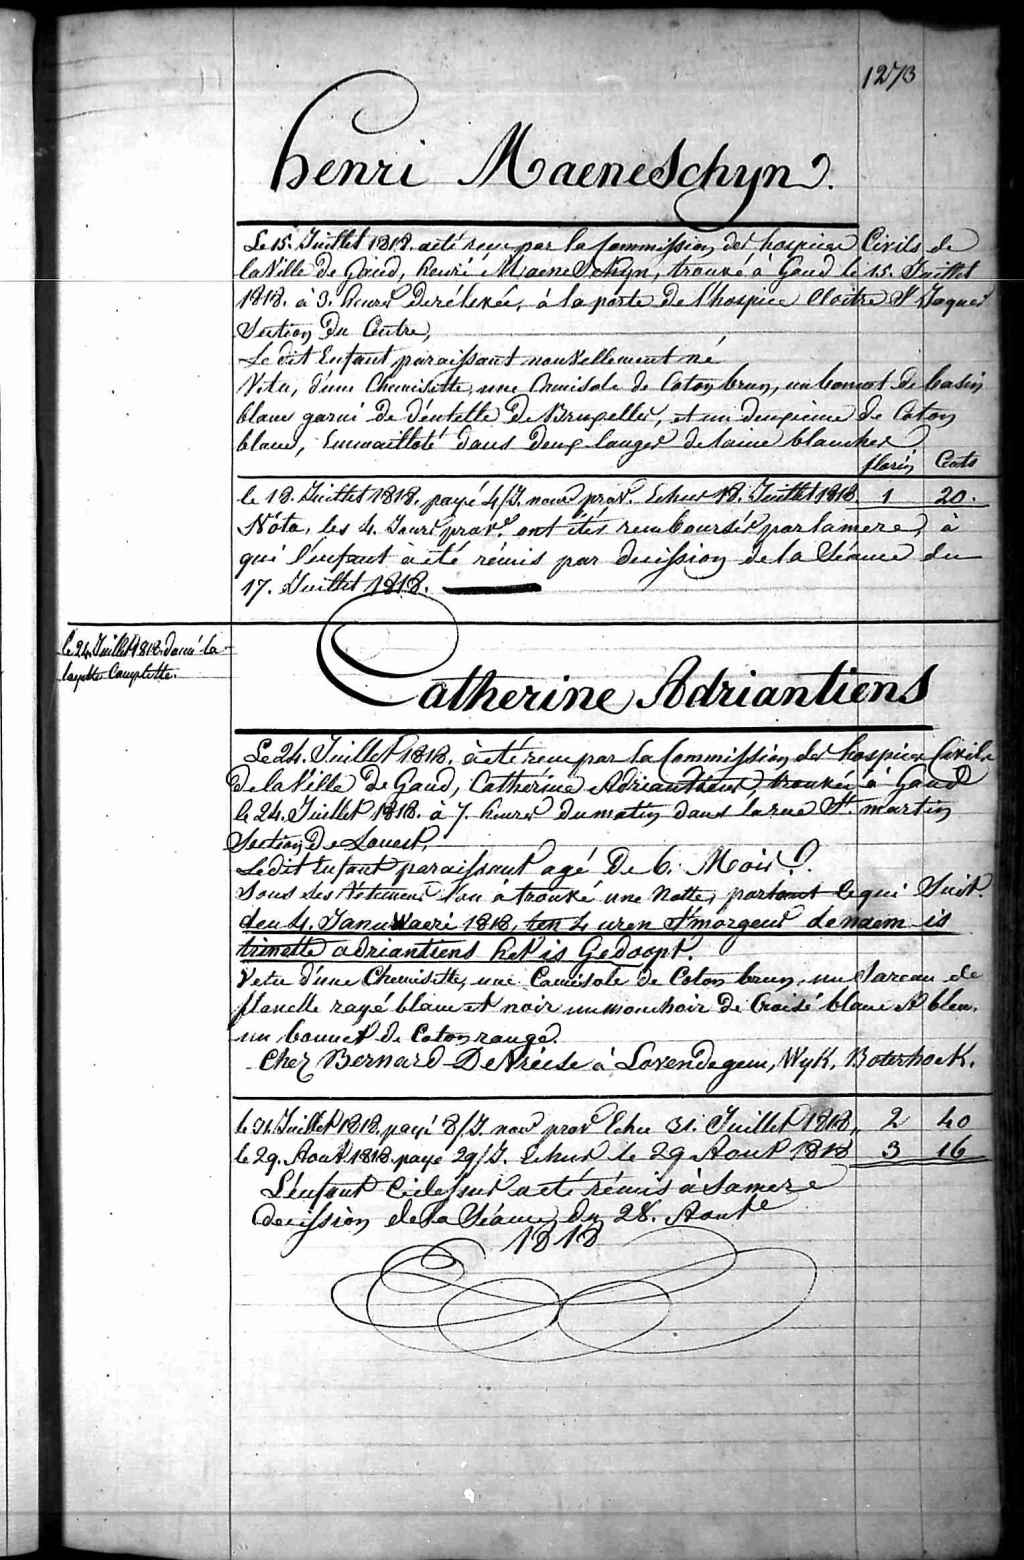 1273
Henri Maeneschyn.
Le 15. Juillet 1818. a été reçu par la Commission des hospices Civils de
la Ville de Gand, henri Maeneschyn, trouvé à Gand le 15. Juillet
1818. à 3. heures de rélevée, à la porte de l'hospice Cloitre St Jaques
Section du Centre,
Le dit Enfant paraissant nouvellement né
Vetu, d'une Chemisette, une Camisole de Coton brun, un bonnet de basin
blanc garni de déntelle de Bruxelles, et un deuxieme de Coton
blanc, Emmailloté dans deux langes de laine blanches
florin Cents
le 18. Juillet 1818. payé 4/J. nour prov. Echus 18. Juillet 1818. 1 20.
Nóta, les 4. Jours prov. ont étés remboursés par la mere, à
qui l'enfant à été rémis par decission de la Séance du
17. Juillet 1818.
le 24. Juillet 1818. donné la
layette Complette.
Catherine Adriantiens
Le 24. Juillet 1818. à été reçu par la Commission des hospices Civils
de la Ville de Gand, Catherine Adriantiens, trouvée à Gand
le 24. Juillet 1818. à 7. heures du matin dans la rue St. martin
Section De Louest,
Le dit Enfant paraissant agé De 6. Mois.
Sous ses Vétemens l'on à trouvé une Notte, portant ce qui Suit.
den 4. Januwaeri 1818, ten 4 uren S'morgens de naem is
trinette adriantiens het is Gedoopt.
Vetu d'une Chemisette, une Camisole de Coton brun, un
flanelle rayé blanc et noir un mouchoir de Croisé blanc et bleu,
un bonnet de Coton rouge.
Chez Bernard De Vriese à Lovendegem, Wyk, Boterhoek.
le 31. Juillet 1818. payé 8/J. nour prov Echu 31. Juillet 1818, 2 40
le 29. Aout 1818. payé 29/J. Echus le 29 Aout 1818 3 16
L'enfant Cidessus a été rémis à Samere
decission de la Séance du 28. Aout
1818